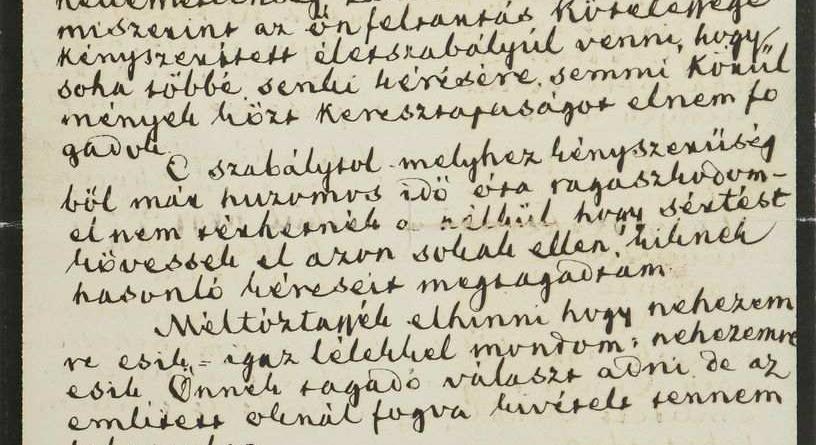 miszerint az ön feltartás kötelessége
kényszeritett életszabályúl venni, hogy
soha többé, senki kérésére, semmi körül
mények közt keresztapaságot elnem fo
gadok.
E szabálytol melyhez kényszerüség
ből már huzomos idő óta ragaszkodom-
el nem térhetnék a nélkül hogy sértést
kövessek el azon sokak ellen, kiknek
hasonló kéréseit megtagadtam.
Méltóztassék elhinni hogy nehezem
re esik, = igaz lélekkel mondom: nehezemre
esik, Önnek tagadó választ adni, de az
emlitett oknál fogva kivételt tennem